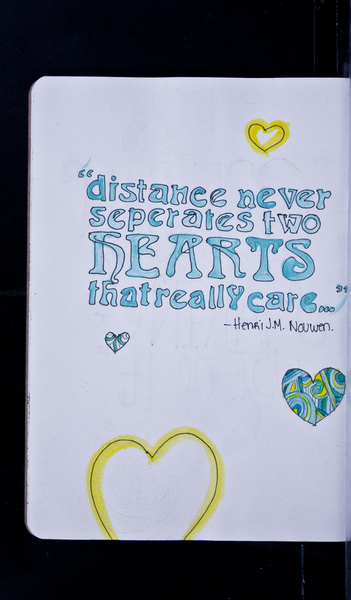 “distance never
seperates two
hEARTS
that really care...”
- Henri J.M. Nouwen.